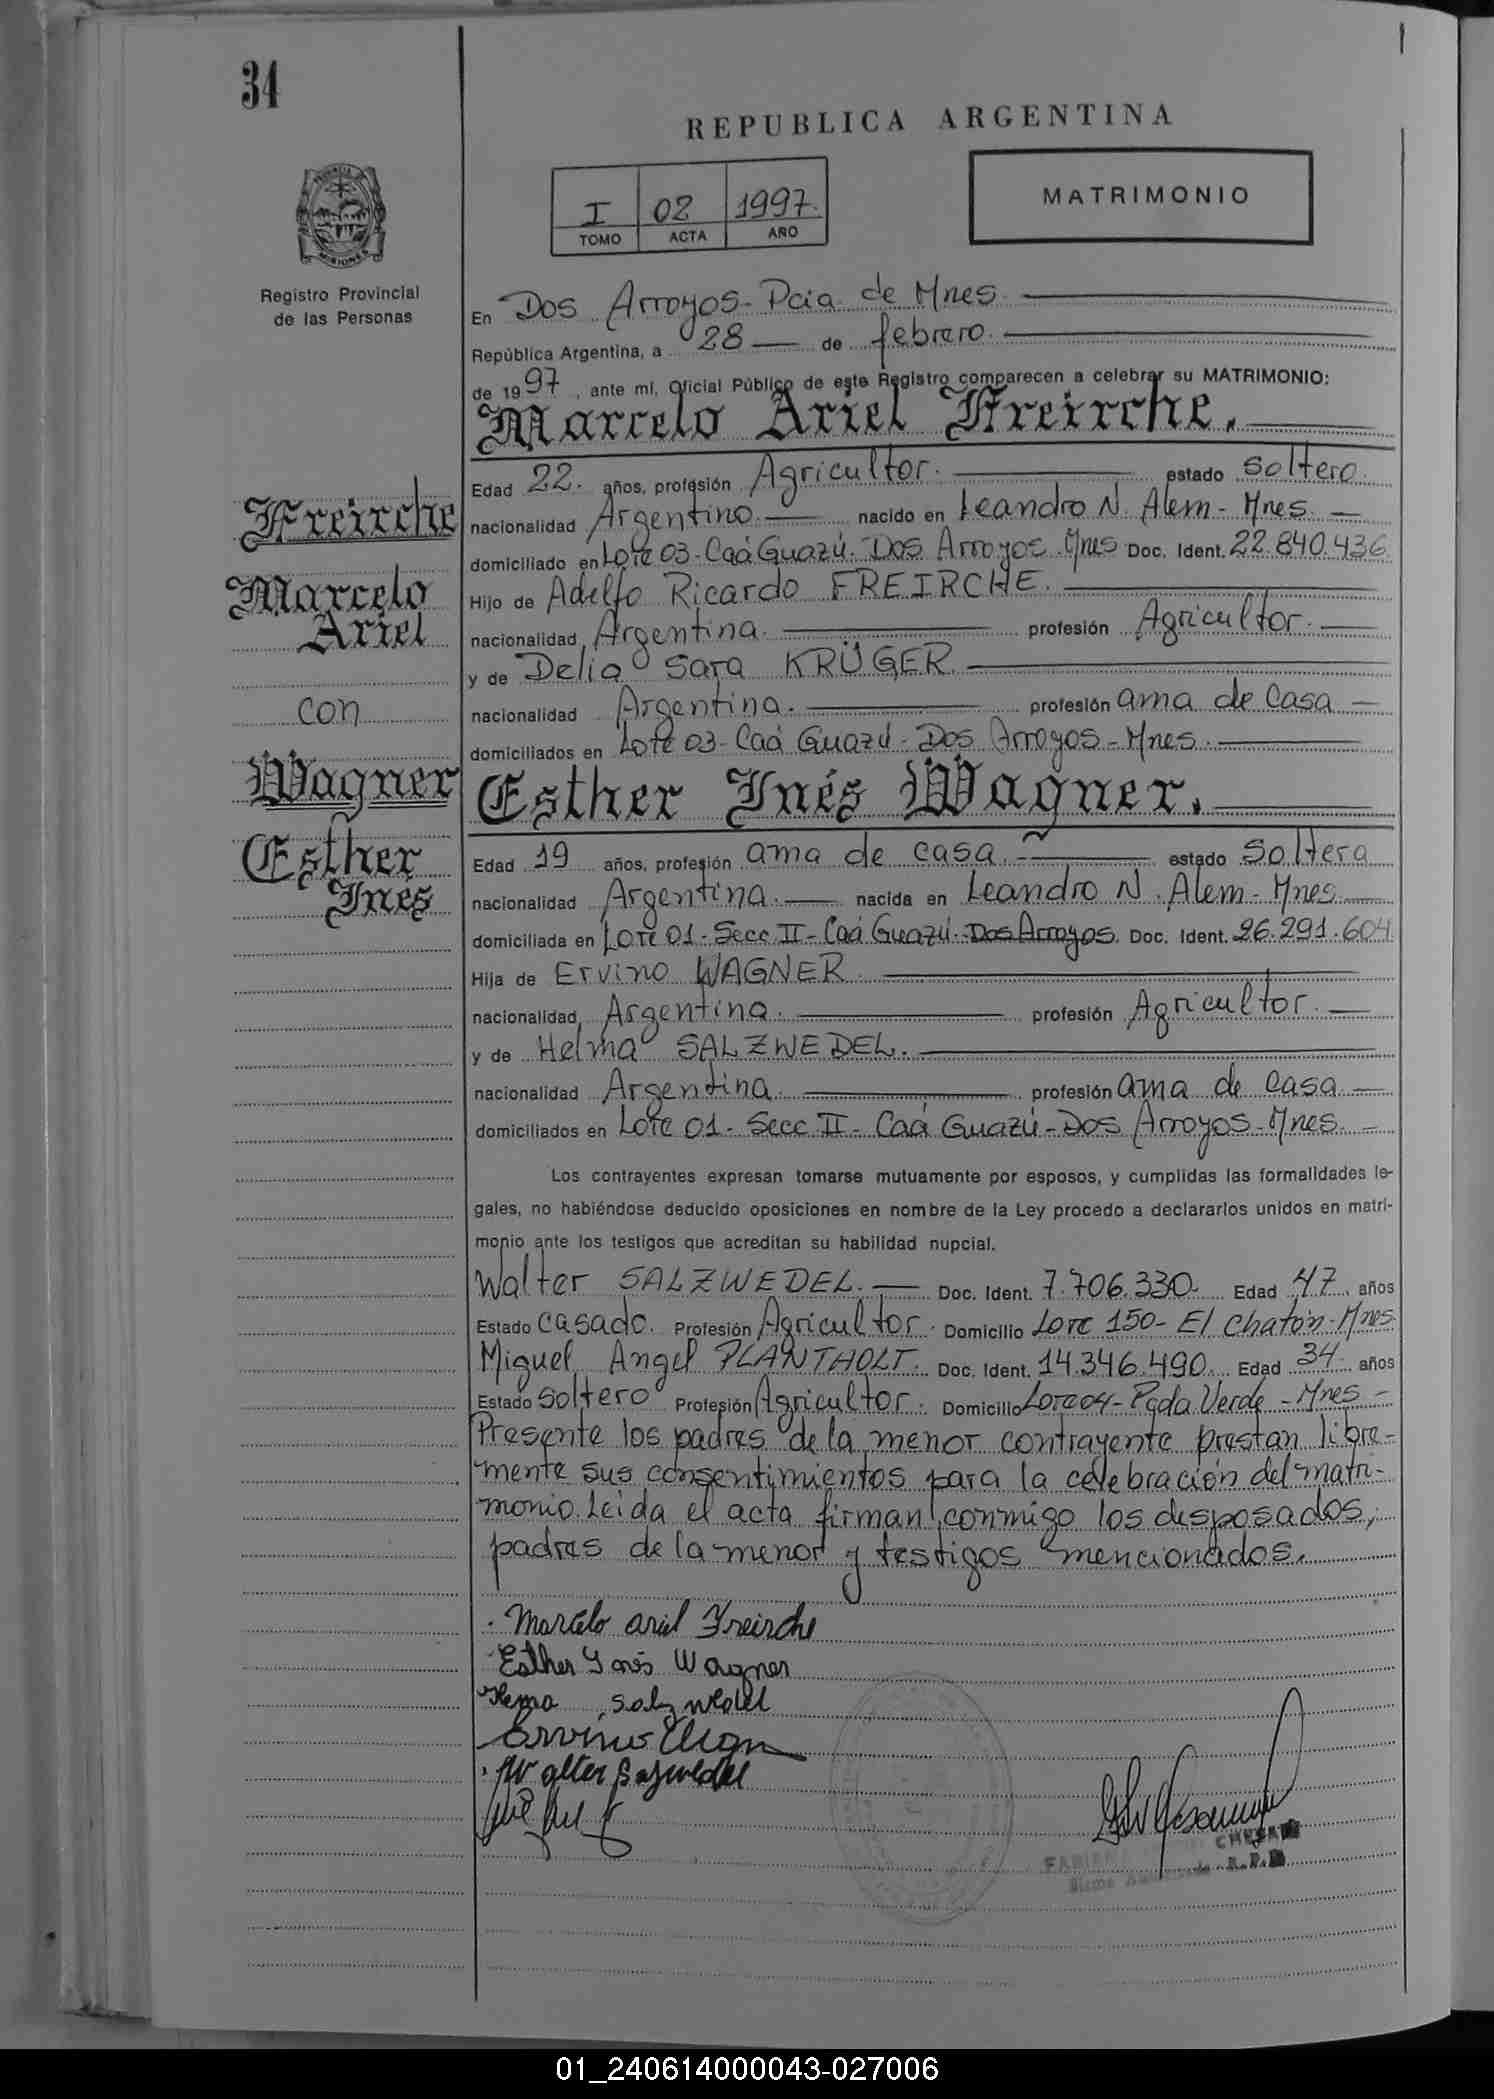 34
REPUBLICA ARGENTINA
I 02 1997.
TOMO ACTA AÑO
MATRIMONIO
PROVINCIA DE
MISIONES
Registro Provincial
de las Personas
En Dos Arroyos - Pcia. de Mnes.
República Argentina, a 28 de febrero.
de 1997, ante mí, Oficial Público de este Registro comparecen a celebrar su MATRIMONIO:
Marcelo Ariel Freirche.
Edad 22. años, profesión Agricultor. estado soltero.
nacionalidad Argentino. nacido en Leandro N. Alem - Mnes.
domiciliado en Lote 03 - Caá Guazú. Dos Arroyos. Mnes Doc. Ident. 22.840.436
Hijo de Adelfo Ricardo FREIRCHE.
nacionalidad Argentina. profesión Agricultor.
y de Delia Sara KRÜGER.
nacionalidad Argentina. profesión ama de casa
domiciliados en Lote 03 - Caá Guazú - Dos Arroyos - Mnes.
Freirche
Marcelo
Ariel
con
Wagner
Esther
Inés
Esther Inés Wagner.
Edad 19 años, profesión ama de casa. estado soltera
nacionalidad Argentina. nacida en Leandro N. Alem - Mnes.
domiciliada en Lote 01 - Secc II - Caá Guazú. Dos Arroyos. Doc. Ident. 26.291.604
Hija de Ervino WAGNER.
nacionalidad Argentina. profesión Agricultor.
y de Helma SALZWEDEL.
nacionalidad Argentina. profesión ama de casa.
domiciliados en Lote 01 - Secc II - Caá Guazú - Dos Arroyos - Mnes.
Los contrayentes expresan tomarse mutuamente por esposos, y cumplidas las formalidades le-
gales, no habiéndose deducido oposiciones en nombre de la Ley procedo a declararlos unidos en matri-
monio ante los testigos que acreditan su habilidad nupcial.
Walter SALZWEDEL. Doc. Ident. 7.706.330. Edad 47 años
Estado casado. Profesión Agricultor. Domicilio Lote 150 - El Chatón - Mnes.
Miguel Angel PLANTHOLT. Doc. Ident. 14.346.490. Edad 34 años
Estado soltero Profesión Agricultor. Domicilio Lote 04 - Pcda Verde - Mnes -
Presente los padres de la menor contrayente prestan libre-
mente sus consentimientos para la celebración del matri-
monio. Leida el acta firman conmigo los desposados,
padres de la menor y testigos mencionados.
Marcelo ariel Freirche
Esther Inés Wagner
Salzwedel
Ervino
Walter Salzwedel
01_240614000043-027006